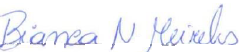 Bianca N Meireles